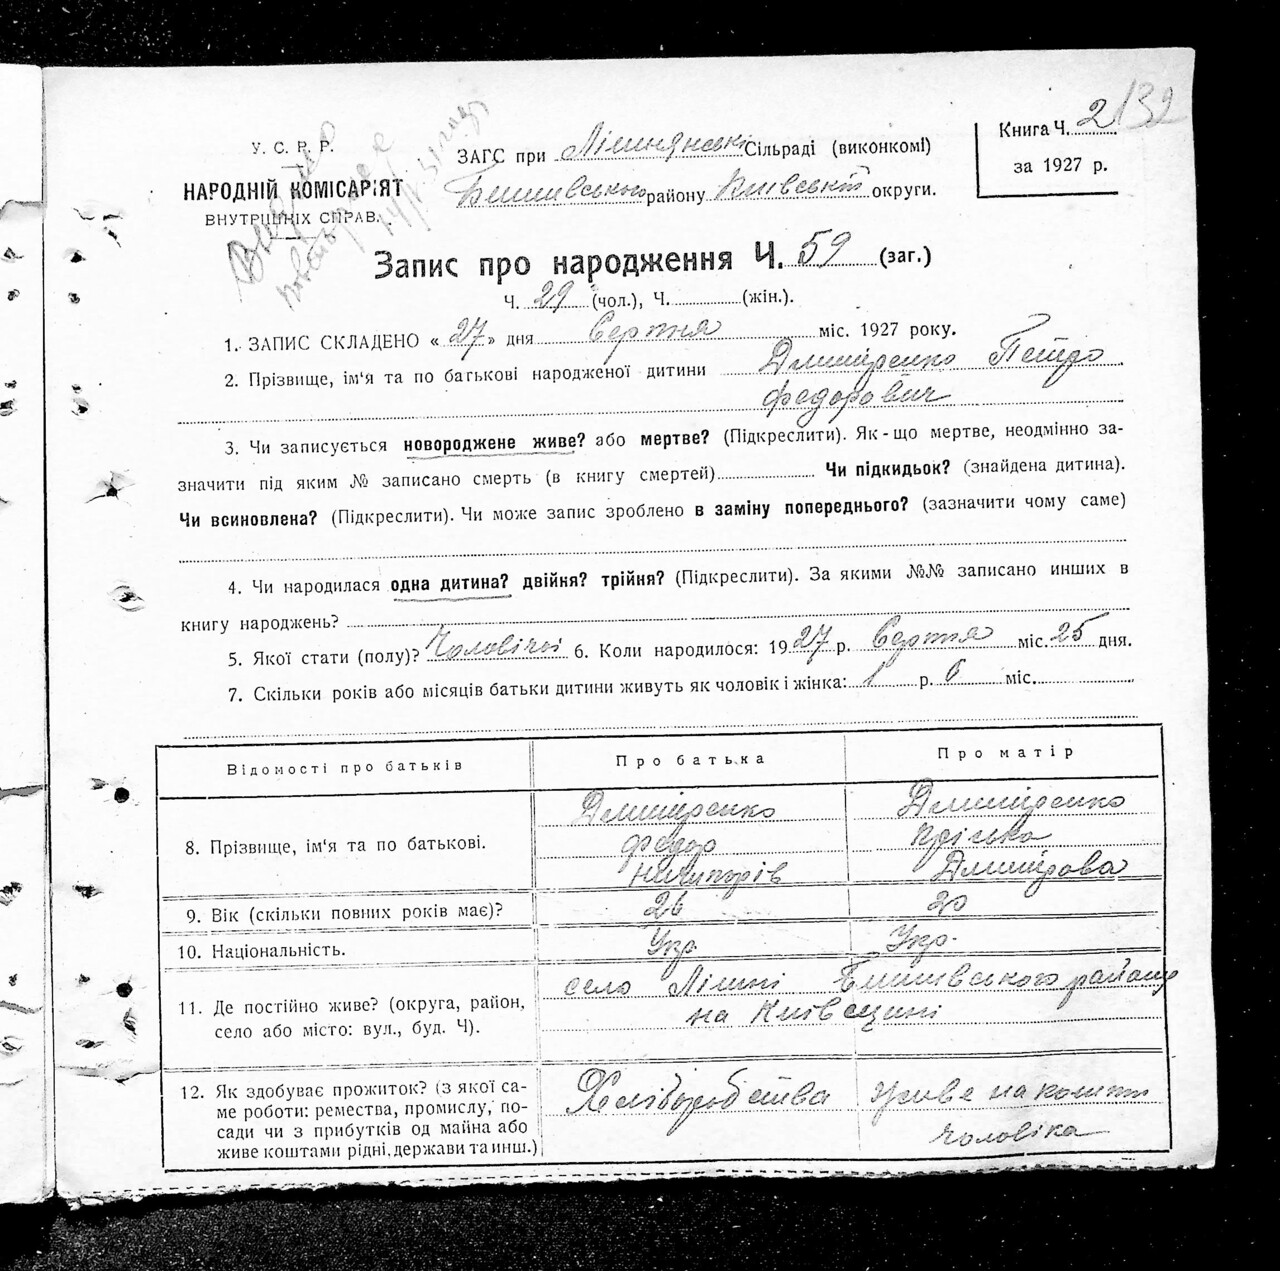 132
У. С. Р. Р.
НАРОДНІЙ КОМІСАРІЯТ
ВНУТРІШНІХ СПРАВ.
ЗАГС при Лішнянські Сільраді (виконкомі)
Бишівського району Київської округи.
Книга Ч. 2
за 1927 р.
Запис про народження Ч. 59 (заг.)
Ч. 29 (чол.), Ч. (жін.).
1. ЗАПИС СКЛАДЕНО « 27 » дня Серпня міс. 1927 року.
2. Прізвище, ім'я та по батькові народженої дитини Дмитренко Петро
Федорович
3. Чи записується новороджене живе? або мертве? (Підкреслити). Як-що мертве, неодмінно за-
значити під яким № записано смерть (в книгу смертей) Чи підкидьок? (знайдена дитина).
Чи всиновлена? (Підкреслити). Чи може запис зроблено в заміну попереднього? (зазначити чому саме)
4. Чи народилася одна дитина? двійня? трійня? (Підкреслити). За якими №№ записано инших в
книгу народжень?
5. Якої стати (полу)? Чоловічої 6. Коли народилося: 1927 р. Серпня міс. 25 дня.
7. Скільки років або місяців батьки дитини живуть як чоловік і жінка: 1 р. 6 міс.
Відомості про батьків Про батька Про матір
8. Прізвище, ім'я та по батькові.
Дмитренко
Федор
Никипорів
Дмитренко
Пріська
Дмитрова
9. Вік (скільки повних років має)? 26 20
10. Національність. Укр. Укр.
11. Де постійно живе? (округа, район,
село або місто: вул., буд. Ч).
село Лішні Бишівського району
на Київщині
12. Як здобуває прожиток? (з якої са-
ме роботи: ремества, промислу, по-
сади чи з прибутків од майна або
живе коштами рідні, держави та инш.)
Хліборобства
живе на кошти
чоловіка